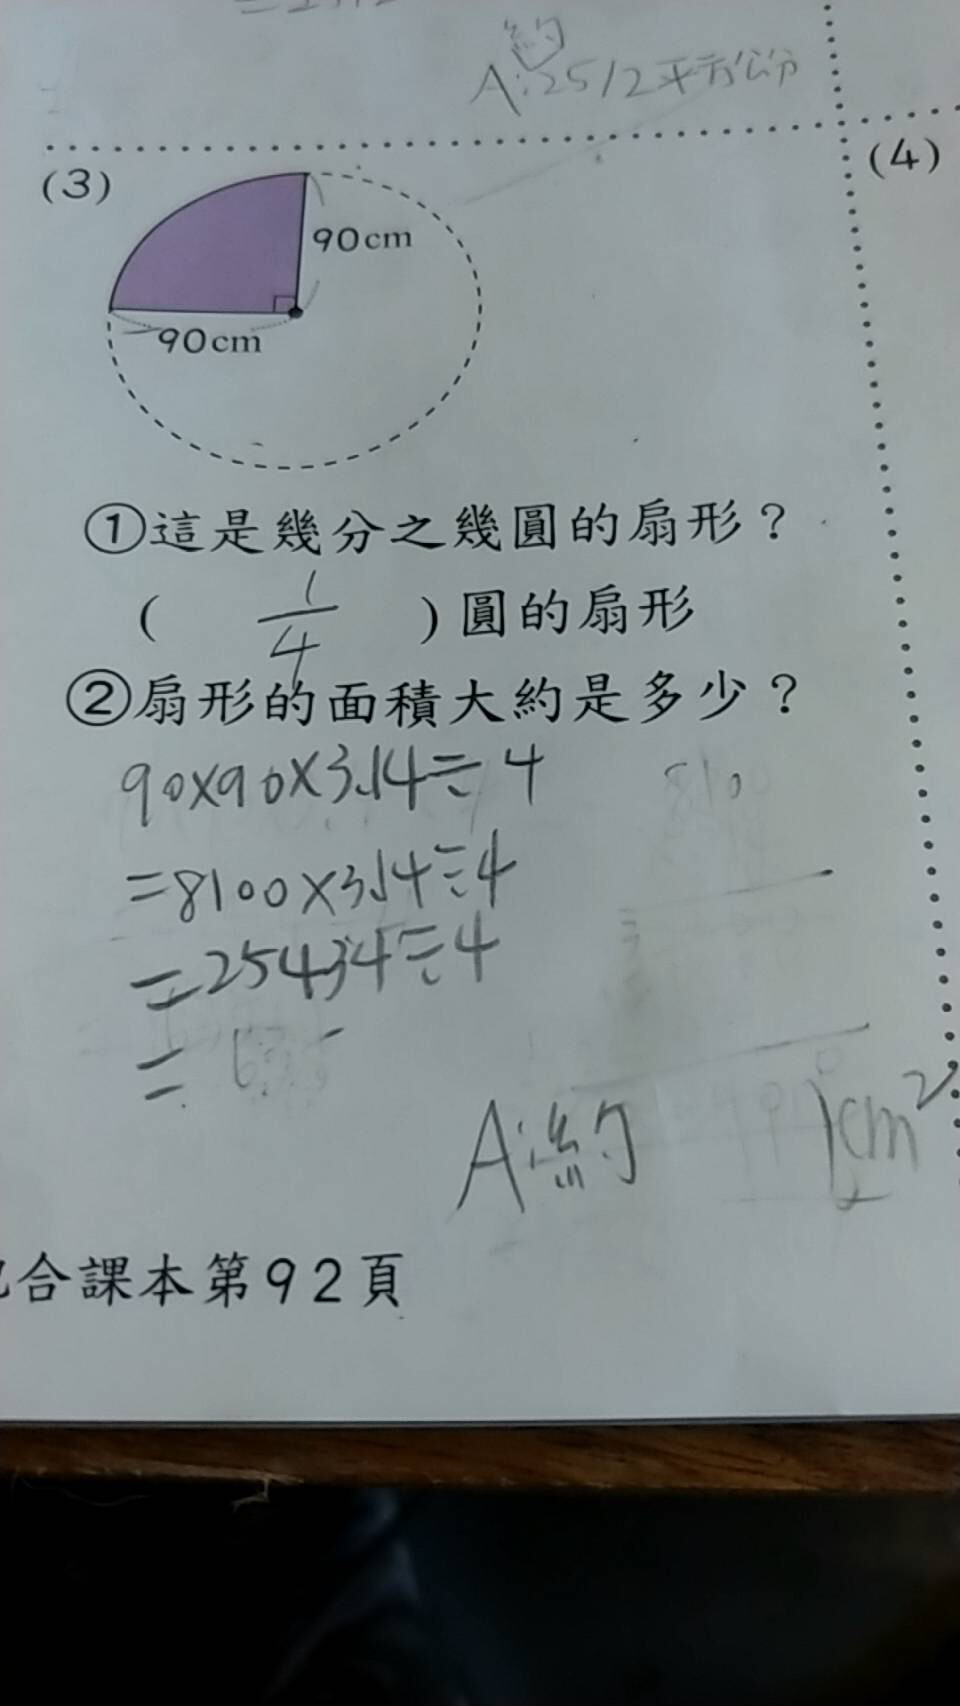 約
A:2512平方公分
(3)
(4)
90cm
90cm
①這是幾分之幾圓的扇形？
( 1/4 )圓的扇形
②扇形的面積大約是多少？
90×90×3.14÷4
=8100×3.14÷4
=25434÷4
=
A:約 cm²
合課本第92頁